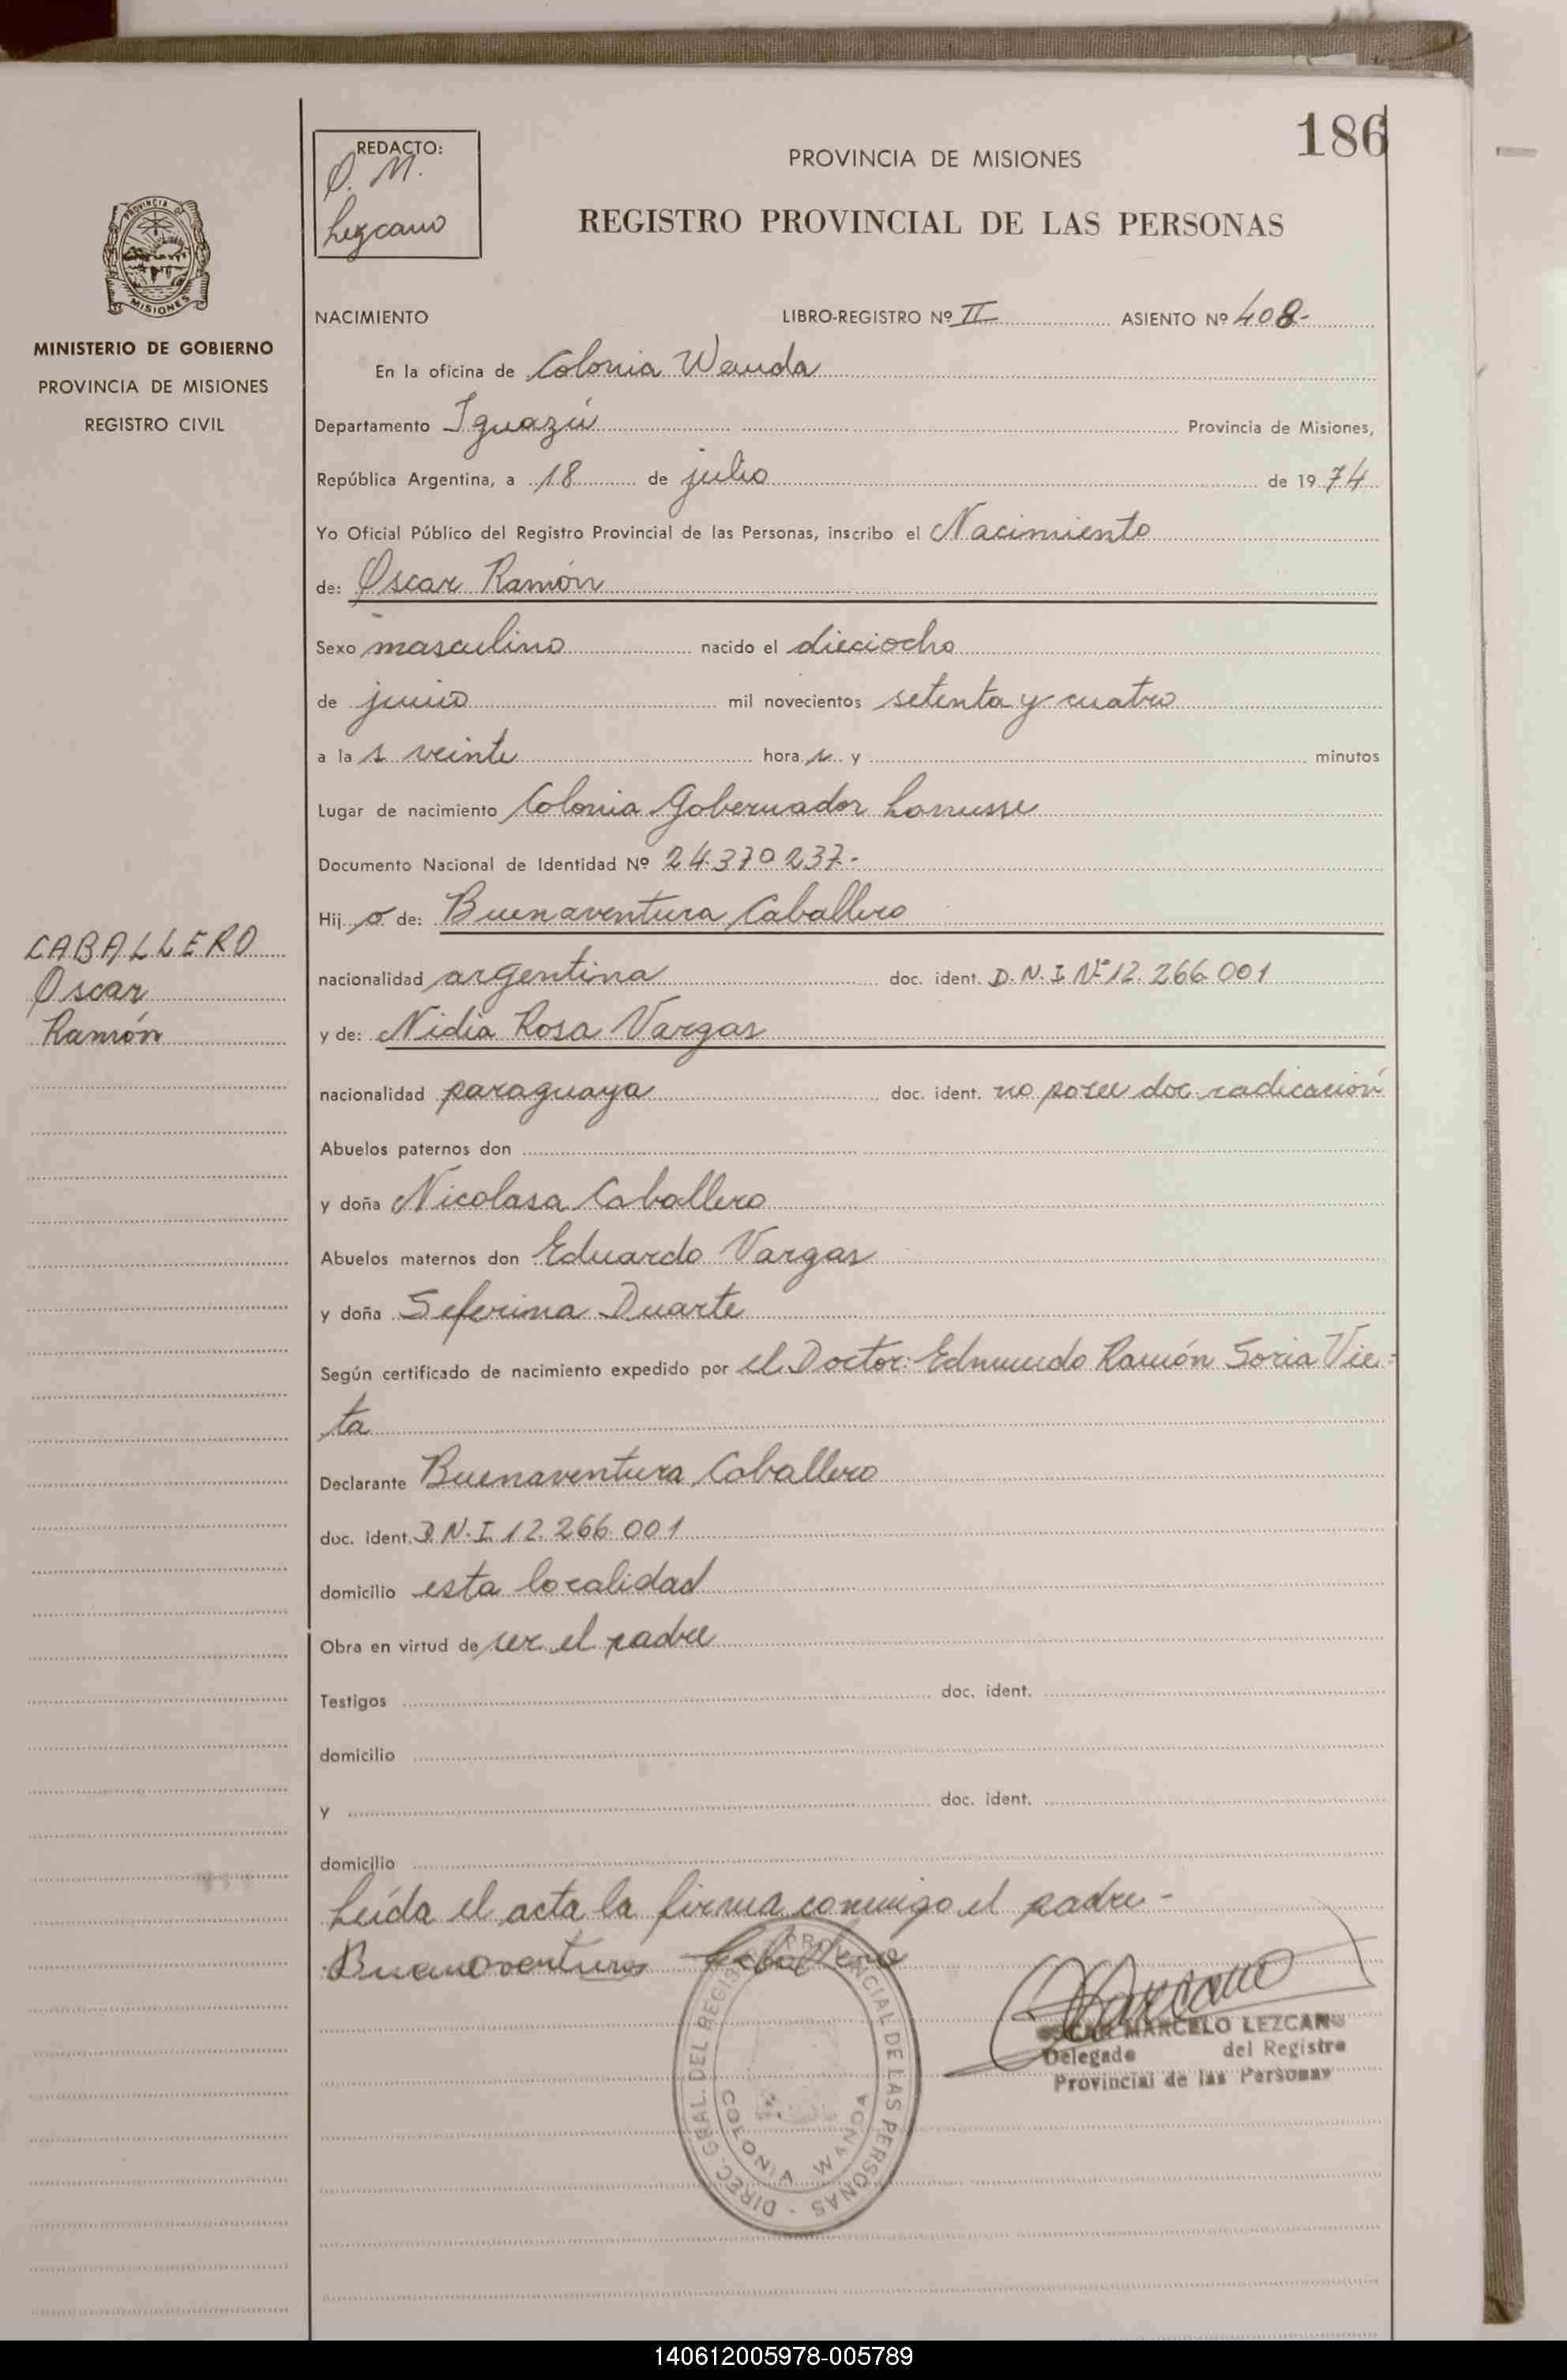 186
REDACTO:
O. M.
Lezcano
PROVINCIA DE MISIONES
REGISTRO PROVINCIAL DE LAS PERSONAS
PROVINCIA D
MISIONES
MINISTERIO DE GOBIERNO
PROVINCIA DE MISIONES
REGISTRO CIVIL
NACIMIENTO LIBRO-REGISTRO Nº II ASIENTO Nº 408-
En la oficina de Colonia Wanda
Departamento Iguazú Provincia de Misiones,
República Argentina, a 18 de julio de 1974
Yo Oficial Público del Registro Provincial de las Personas, inscribo el Nacimiento
de: Oscar Ramón
Sexo masculino nacido el dieciocho
de junio mil novecientos setenta y cuatro
a la s veinte hora s y minutos
Lugar de nacimiento Colonia Gobernador Lanusse
Documento Nacional de Identidad Nº 24.370.237-
Hij o de: Buenaventura Caballero
CABALLERO
Oscar
Ramón
nacionalidad argentina doc. ident. D.N.I. Nº 12.266.001
y de: Nidia Rosa Vargas
nacionalidad paraguaya doc. ident. no posee doc radicación
Abuelos paternos don
y doña Nicolasa Caballero
Abuelos maternos don Eduardo Vargas
y doña Seferina Duarte
Según certificado de nacimiento expedido por el Doctor: Edmundo Ramón Soria Vie-
ta
Declarante Buenaventura Caballero
doc. ident. D.N.I. 12.266.001
domicilio esta localidad
Obra en virtud de ser el padre
Testigos doc. ident.
domicilio
y doc. ident.
domicilio
Leída el acta la firma conmigo el padre-
Buenaventura Caballero
OSCAR MARCELO LEZCANO
Delegado del Registro
Provincial de las Personas
DIREC. GRAL. DEL REGISTRO PROVINCIAL DE LAS PERSONAS -
COLONIA WANDA
140612005978-005789